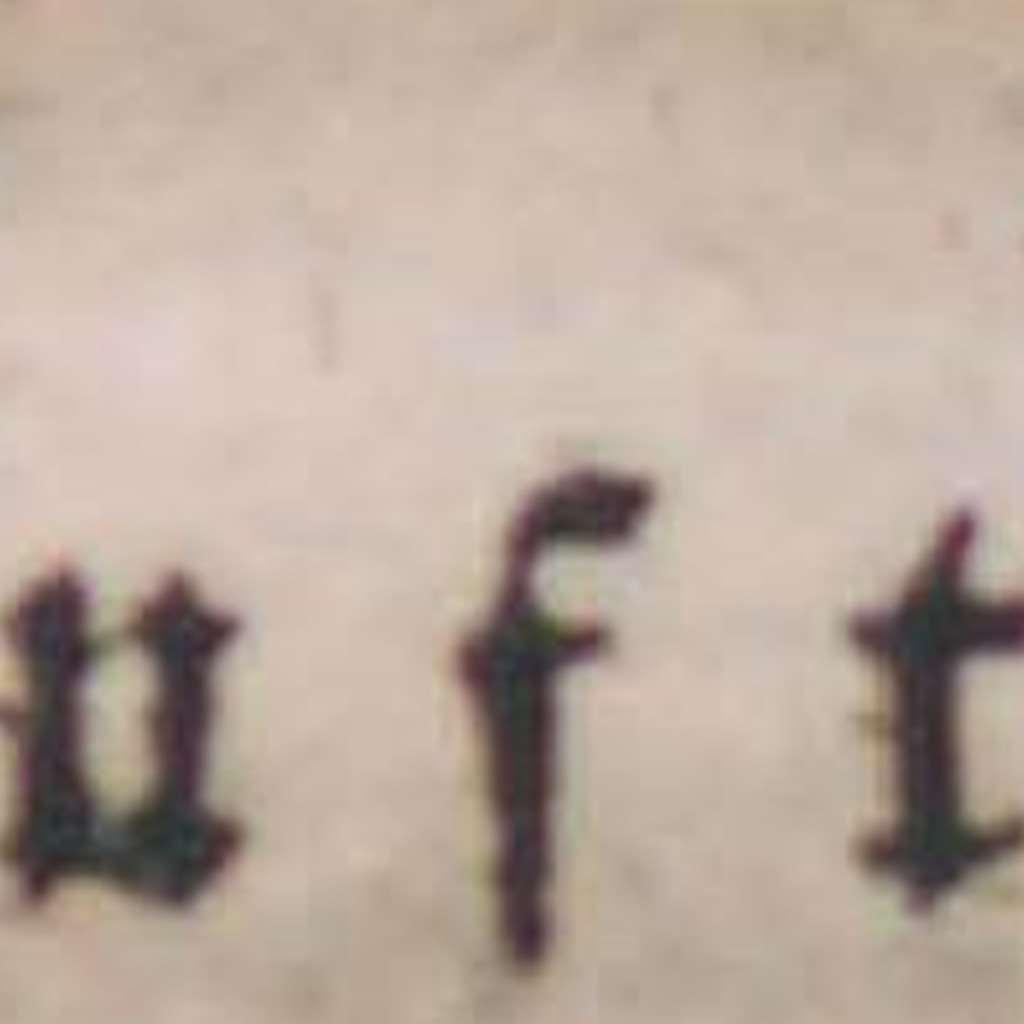 u f t